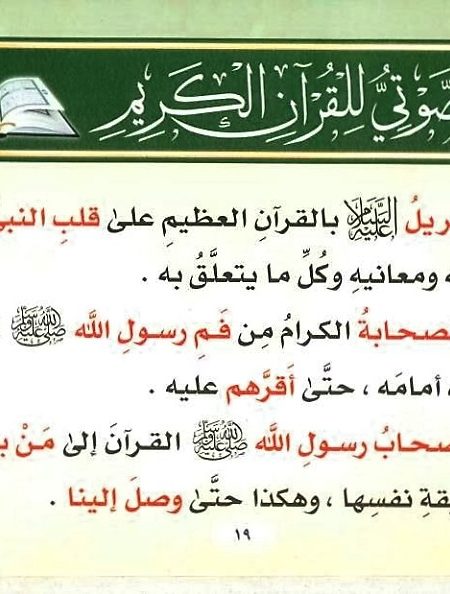 صَوْتيُّ لِلْقُرْآنِ الْكَرِيمِ
ريلُ عليه السلام بالقرآنِ العظيمِ على قلبِ النبيِّ
ه ومعانيهِ وكُلِّ ما يتعلَّقُ به .
صحابةُ الكرامُ مِن فَمِ رسولِ اللَّه ﷺ
، أمامَه ، حتَّى أقرَّهم عليه .
صحابُ رسولِ اللَّه ﷺ القرآنَ إلى مَنْ ب
يقةِ نفسِها ، وهكذا حتَّى وصلَ إلينا .
١٩